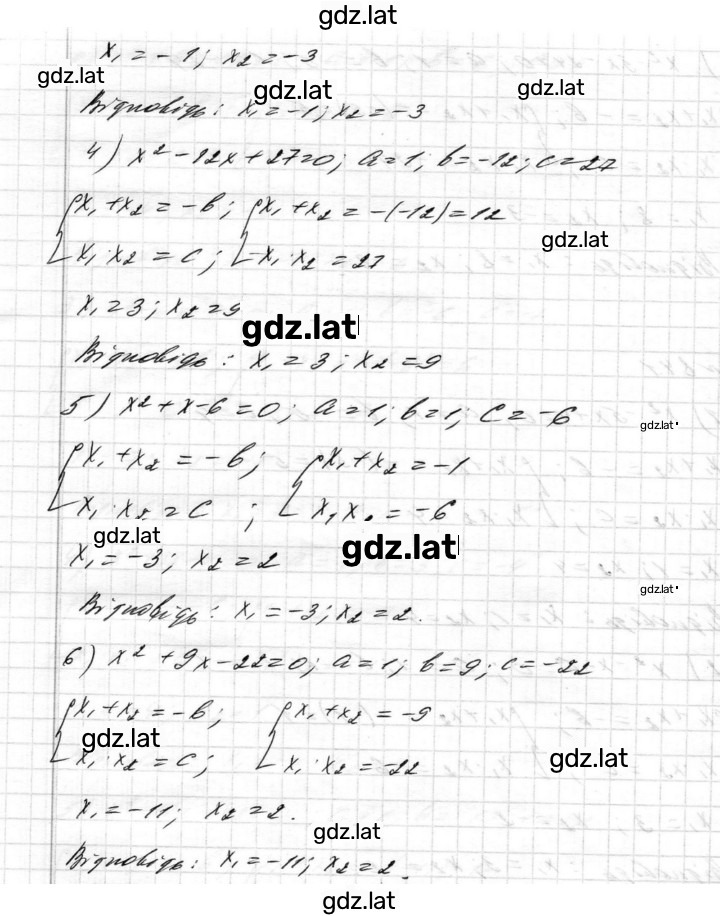 gdz.lat
x₁ = -1; x₂ = -3
gdz.lat
gdz.lat
gdz.lat
Відповідь: x₁ = -1; x₂ = -3
4) x² - 12x + 27 = 0; a = 1; b = -12; c = 27
{x₁ + x₂ = -b; {x₁ + x₂ = -(-12) = 12
gdz.lat
x₁ · x₂ = c; x₁ · x₂ = 27
x₁ = 3; x₂ = 9
gdz.lat
Відповідь: x₁ = 3; x₂ = 9
5) x² + x - 6 = 0; a = 1; b = 1; c = -6
gdz.lat
{x₁ + x₂ = -b; {x₁ + x₂ = -1
x₁ · x₂ = c; x₁ x₂ = -6
gdz.lat
gdz.lat
x₁ = -3; x₂ = 2
gdz.lat
Відповідь: x₁ = -3; x₂ = 2.
6) x² + 9x - 22 = 0; a = 1; b = 9; c = -22
{x₁ + x₂ = -b; {x₁ + x₂ = -9
gdz.lat
gdz.lat
x₁ · x₂ = c; x₁ · x₂ = -22
x₁ = -11; x₂ = 2.
gdz.lat
Відповідь: x₁ = -11; x₂ = 2.
gdz.lat